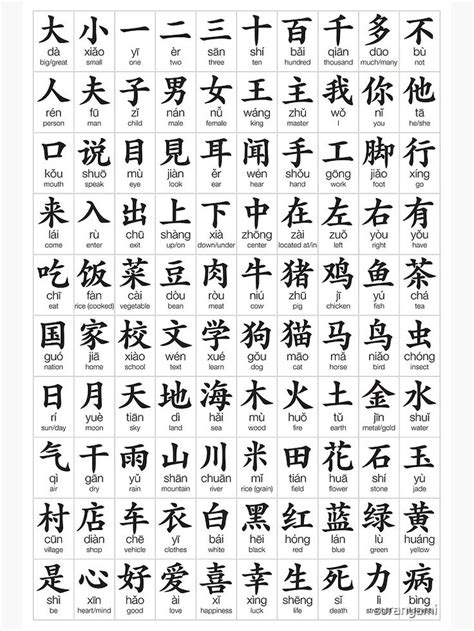 大 小 一 二 三 十 百 千 多 不
dà xiǎo yī èr sān shí bǎi qiān duō bù
big/great small one two three ten hundred thousand much/many not
人 夫 子 男 女 王 主 我 你 他
rén fū zǐ nán nǚ wáng zhǔ wǒ nǐ tā
person man child male female king master I you he/she
口 说 目 見 耳 闻 手 工 脚 行
kǒu shuō mù jiàn ěr wén shǒu gōng jiǎo xíng
mouth speak eye look ear hear hand work foot go
来 入 出 上 下 中 在 左 右 有
lái rù chū shàng xià zhōng zài zuǒ yòu yǒu
come enter exit up/on down/under center located at/in left right have
吃 饭 菜 豆 肉 牛 猪 鸡 鱼 茶
chī fàn cài dòu ròu niú zhū jī yú chá
eat rice (cooked) vegetable bean meat cow pig chicken fish tea
国 家 校 文 学 狗 猫 马 鸟 虫
guó jiā xiào wén xué gǒu māo mǎ niǎo chóng
nation home school text learn dog cat horse bird insect
日 月 天 地 海 木 火 土 金 水
rí yuè tiān dì hǎi mù huǒ tǔ jīn shuǐ
sun/day moon sky land sea wood fire earth metal/gold water
气 干 雨 山 川 米 田 花 石 玉
qì gān yǔ shān chuān mǐ tián huā shí yù
air dry rain mountain river rice (grain) field flower stone jade
村 店 车 衣 白 黑 红 蓝 绿 黄
cūn diàn chē yī bái hēi hóng lán lǜ huáng
village shop vehicle clothes white black red blue green yellow
是 心 好 爱 喜 幸 生 死 力 病
shì xīn hǎo ài xǐ xìng shēng sǐ lì bìng
be heart/mind good love happiness luck life death